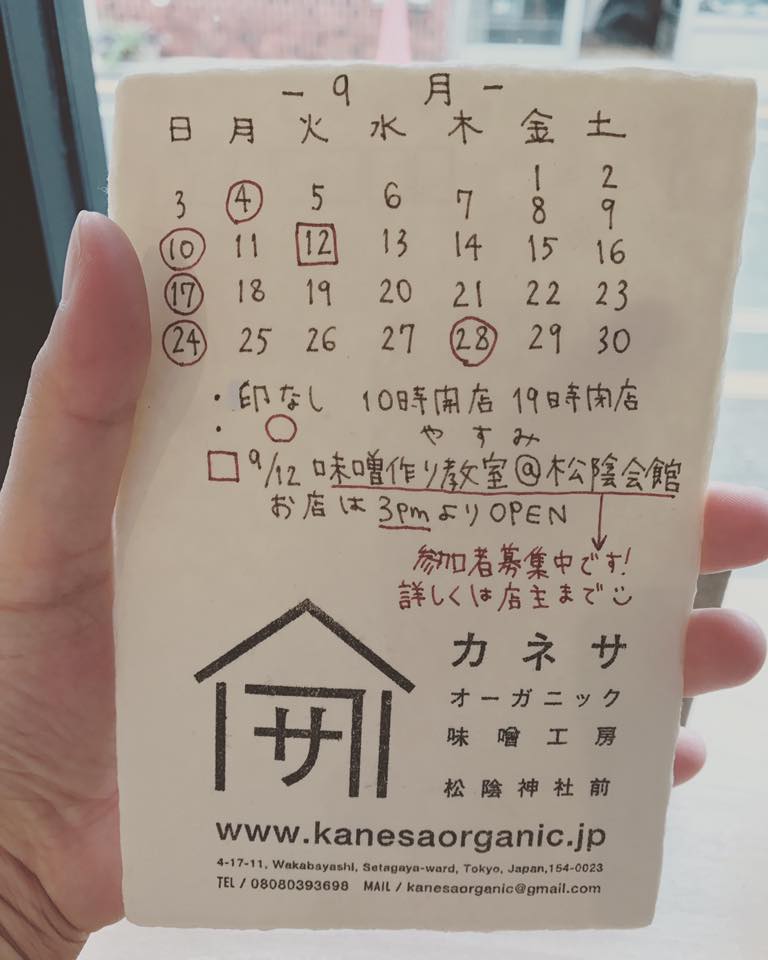 - 9 月 -
日 月 火 水 木 金 土
1 2
3 4 5 6 7 8 9
10 11 12 13 14 15 16
17 18 19 20 21 22 23
24 25 26 27 28 29 30
・印なし 10時開店 19時閉店
・○ やすみ
□ 9/12 味噌作り教室@松陰会館
お店は 3pmよりOPEN
参加者募集中です!
詳しくは店主まで
サ
カネサ
オーガニック
味噌工房
松陰神社前
www.kanesaorganic.jp
4-17-11, Wakabayashi, Setagaya-ward, Tokyo, Japan,154-0023
TEL / 08080393698 MAIL / kanesaorganic@gmail.com